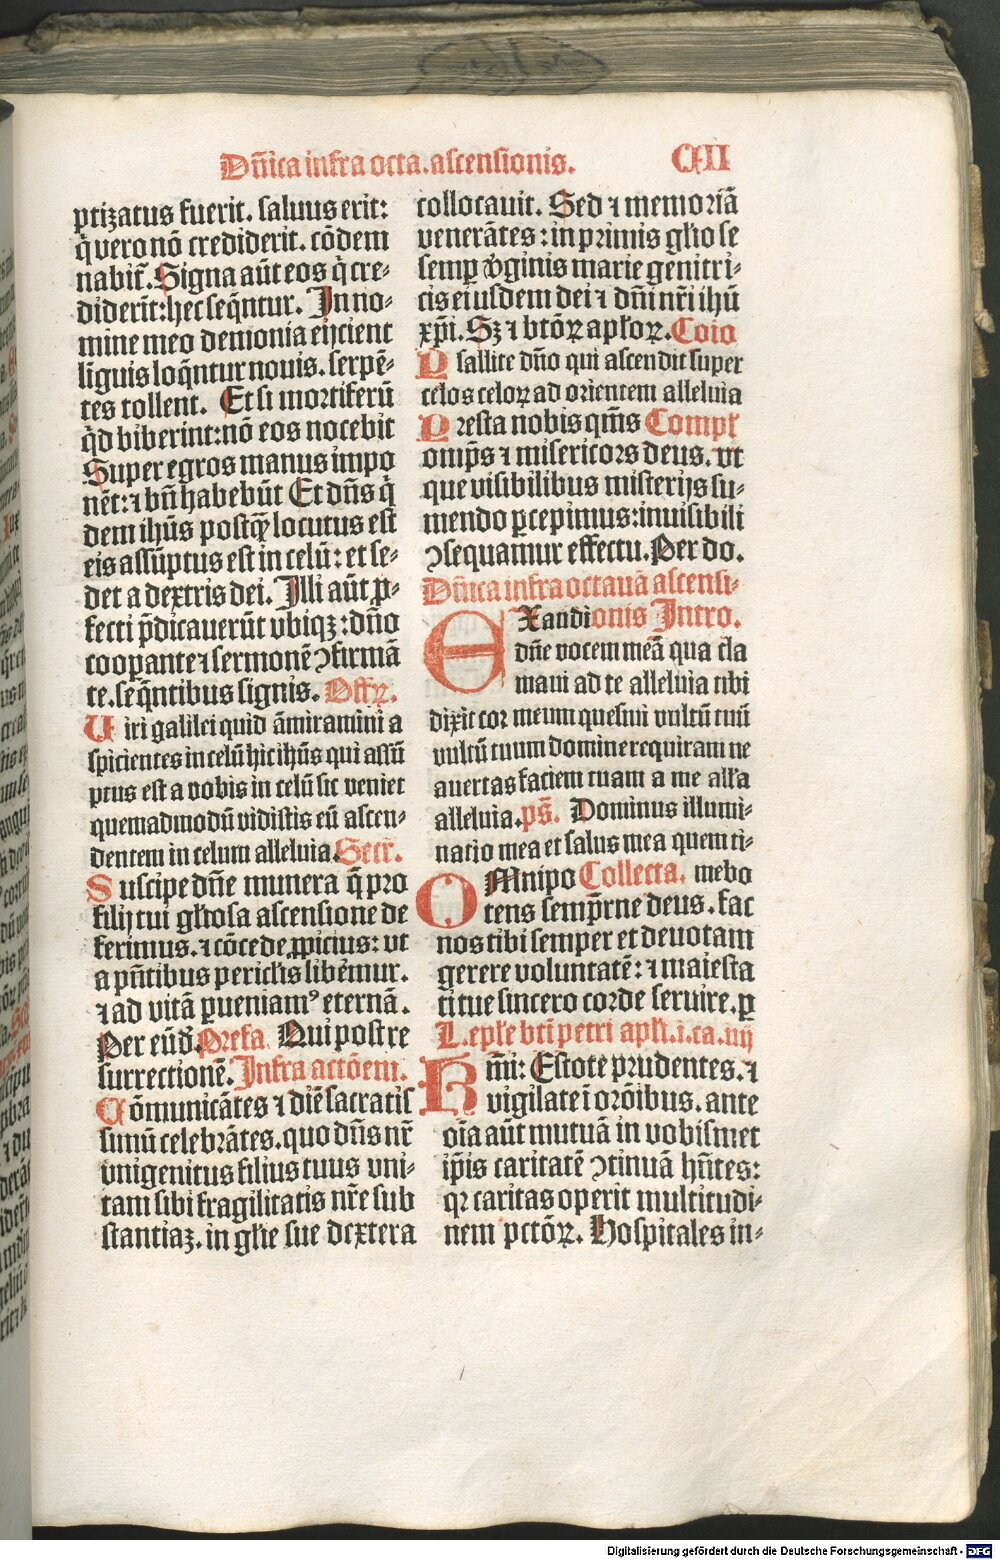 Dñica infra octa. ascensionis.
CXII
ptizatus fuerit. saluus erit:
q̇ vero nõ crediderit. cõdem
nabit̃. Signa aũt eos q̇ cre⸗
diderĩt: hec seq̃ntur. In no⸗
mine meo demonia eijcient
lĩguis loq̃ntur nouis. serpẽ⸗
tes tollent. Et si mortiferũ
q̇d biberint: nõ eos nocebit
Super egros manus impo
nẽt: ⁊ bñ habebũt Et dñs q̇
dem ihũs postq̃ locutus est
eis assũptus est in celũ: et se⸗
det a dextris dei. Illi aũt ꝑ⸗
fecti p̃dicauerũt vbiqꝫ: dño
coopante ⁊ sermonẽ ↄfirmã
te. seq̃ntibus signis. Offꝝ.
Uiri galilei quid ãmiramini a
spicientes in celũ hic ihũs qui assũ
ptus est a vobis in celũ sic veniet
quemadmodũ vidistis eũ ascen⸗
dentem in celum alleluia. Secr̃.
Suscipe dñe munera q̃ pro
filij tui gl̃iosa ascensione de
ferimus. ⁊ cõcede ꝓpicius: vt
a pñtibus pericl̃is libẽmur.
⁊ ad vitã ꝑueniamꝰ eternã.
Per eũd̃. Prefa. Qui post re
surrectionẽ. Infra actõem.
Cõmunicãtes ⁊ diẽ sacratis
simũ celebrãtes. quo dñs nr̃
vnigenitus filius tuus vni⸗
tam sibi fragilitatis nr̃e sub
stantiaꝫ. in gl̃ie sue dextera
collocauit. Sed ⁊ memoriã
venerãtes: in primis gl̃iose
semꝑ v̓ginis marie genitri⸗
cis eiusdem dei ⁊ dñi nr̃i ihũ
xp̃i. Sꝫ ⁊ btõꝝ apl̃oꝝ. Coĩo
Psallite dño qui ascendit super
celos celoꝝ ad orientem alleluia
Presta nobis qm̃s Compl̃
omp̃s ⁊ misericors deus. vt
que visibilibus misterijs su⸗
mendo ꝑcepimus: inuisibili
ↄsequamur effectu. Per do.
Dñica infra octauã ascensi⸗
EXaudi onis Intro.
dñe vocem meã qua cla
maui ad te alleluia tibi
dixit cor meum quesiui vultũ tuũ
vultũ tuum domine requiram ne
auertas faciem tuam a me all̃a
alleluia. ps̃. Dominus illumi⸗
natio mea et salus mea quem ti⸗
OMnipo Collecta. mebo
tens semp̃rne deus. fac
nos tibi semper et deuotam
gerere voluntatẽ: ⁊ maiesta
ti tue sincero corde seruire. ꝑ
L. ep̃le bt̃i petri apl̃i. i. ca. iiij
Km̃i: Estote prudentes. ⁊
vigilate ĩ orõibus. ante
oĩa aũt mutuã in vobismet
ip̃is caritatẽ ↄtinuã hñtes:
qꝛ caritas operit multitudi⸗
nem pctõꝝ. Hospitales in⸗
Digitalisierung gefördert durch die Deutsche Forschungsgemeinschaft - DFG